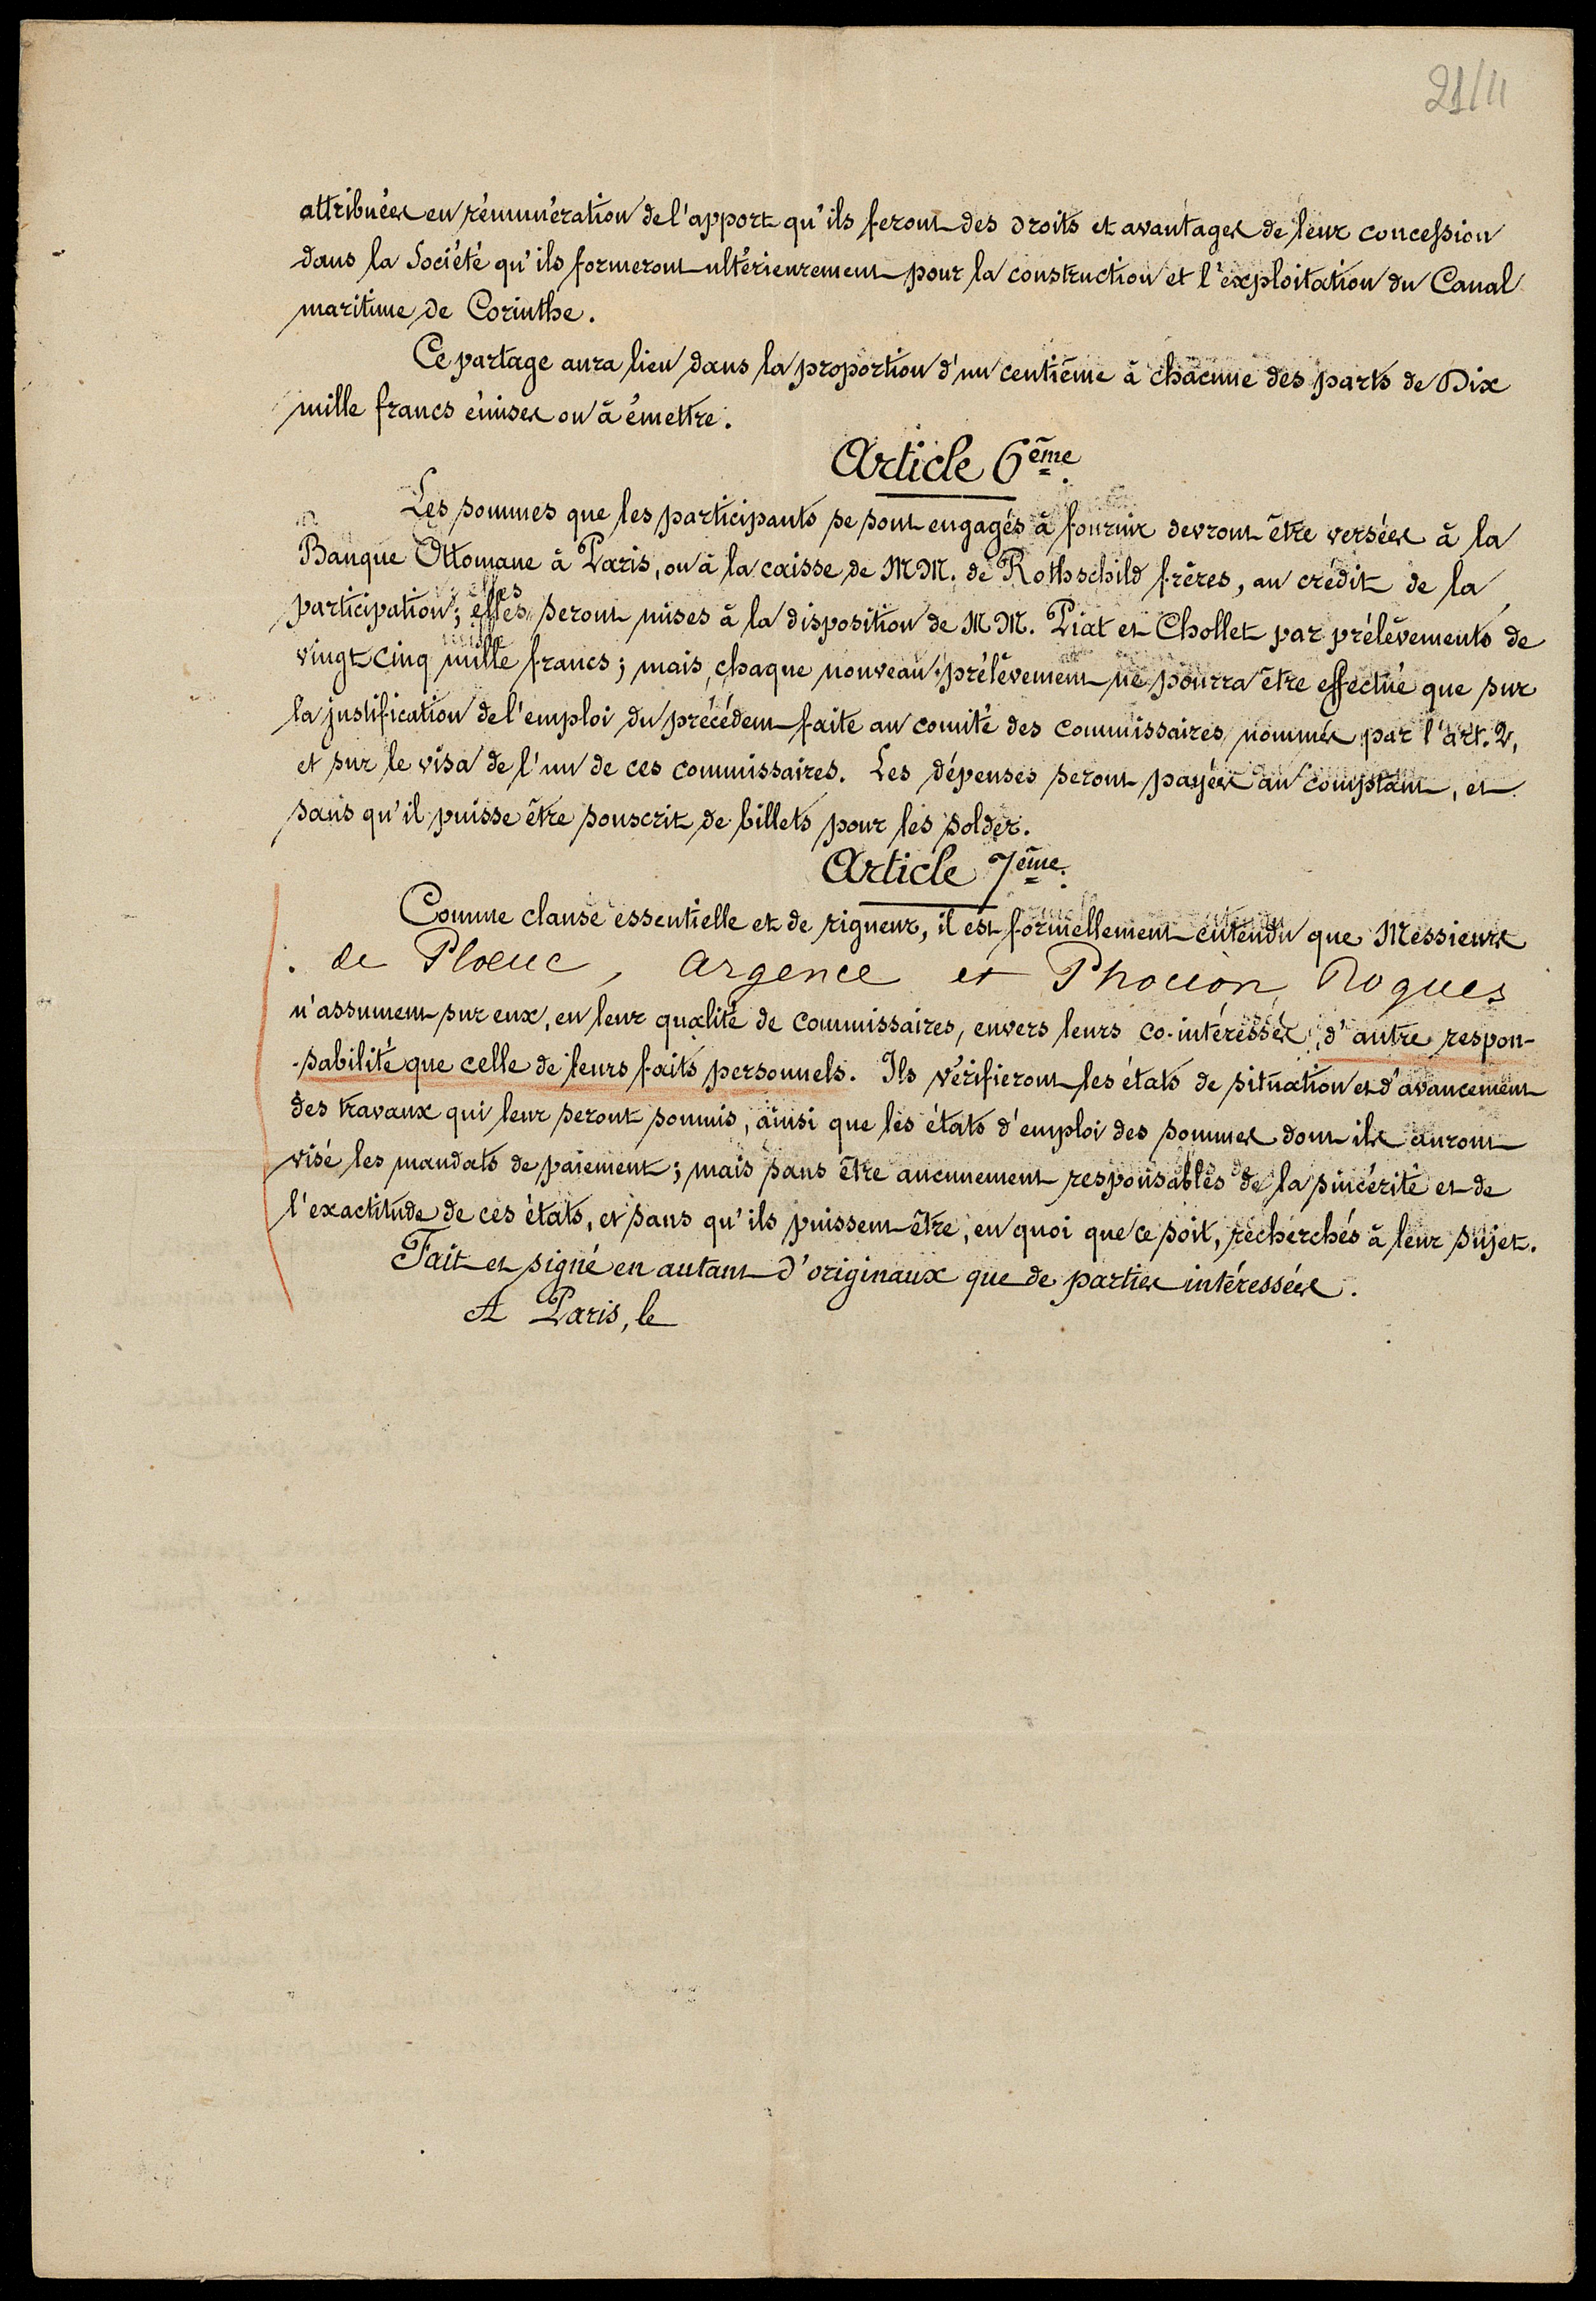 21/11
attribuées en rémunération de l'apport qu'ils feront des droits et avantages de leur concession
dans la Société qu'ils formeront ultérieurement pour la construction et l'exploitation du Canal
maritime de Corinthe.
Ce partage aura lieu dans la proportion d'un centième à chacune des parts de Dix
mille francs émises ou à émettre.
Article 6ème.
Les sommes que les participants se sont engagés à fournir devront être versées à la
Banque Ottomane à Paris, ou à la caisse de MM. de Rothschild frères, au crédit de la
participation; elles seront mises à la disposition de MM. Piat et Chollet par prélèvements de
vingt cinq mille francs; mais, chaque nouveau prélèvement ne pourra être effectué que sur
la justification de l'emploi du précédent faite au comité des commissaires nommés par l'art. 2,
et sur le visa de l'un de ces commissaires. Les dépenses seront payées au comptant, et
sans qu'il puisse être souscrit de billets pour les solder.
Article 7ème.
Comme clause essentielle et de rigueur, il est formellement entendu que Messieurs
de Ploeuc, Argence et Phocion Roques
n'assument sur eux, en leur qualité de commissaires, envers leurs co-intéressés, d'autre respon-
-sabilité que celle de leurs faits personnels. Ils vérifieront les états de situation et d'avancement
des travaux qui leur seront soumis, ainsi que les états d'emploi des sommes dont ils auront
visé les mandats de paiement; mais sans être aucunement responsables de la sincérité et de
l'exactitude de ces états, et sans qu'ils puissent être, en quoi que ce soit, recherchés à leur sujet.
Fait et signé en autant d'originaux que de parties intéressées.
A Paris, le